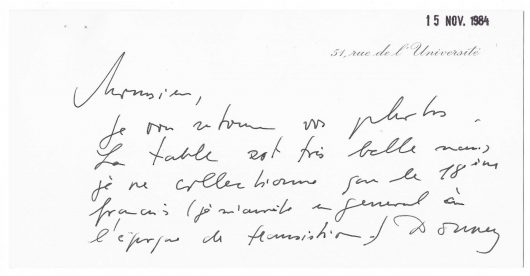 15 NOV. 1984
51, rue de l'Université
Monsieur,
Je vous retourne vos photos.
La table est très belle mais
je ne collectionne que le 18ème
français (je m'arrête en général à
l'époque de transition.)